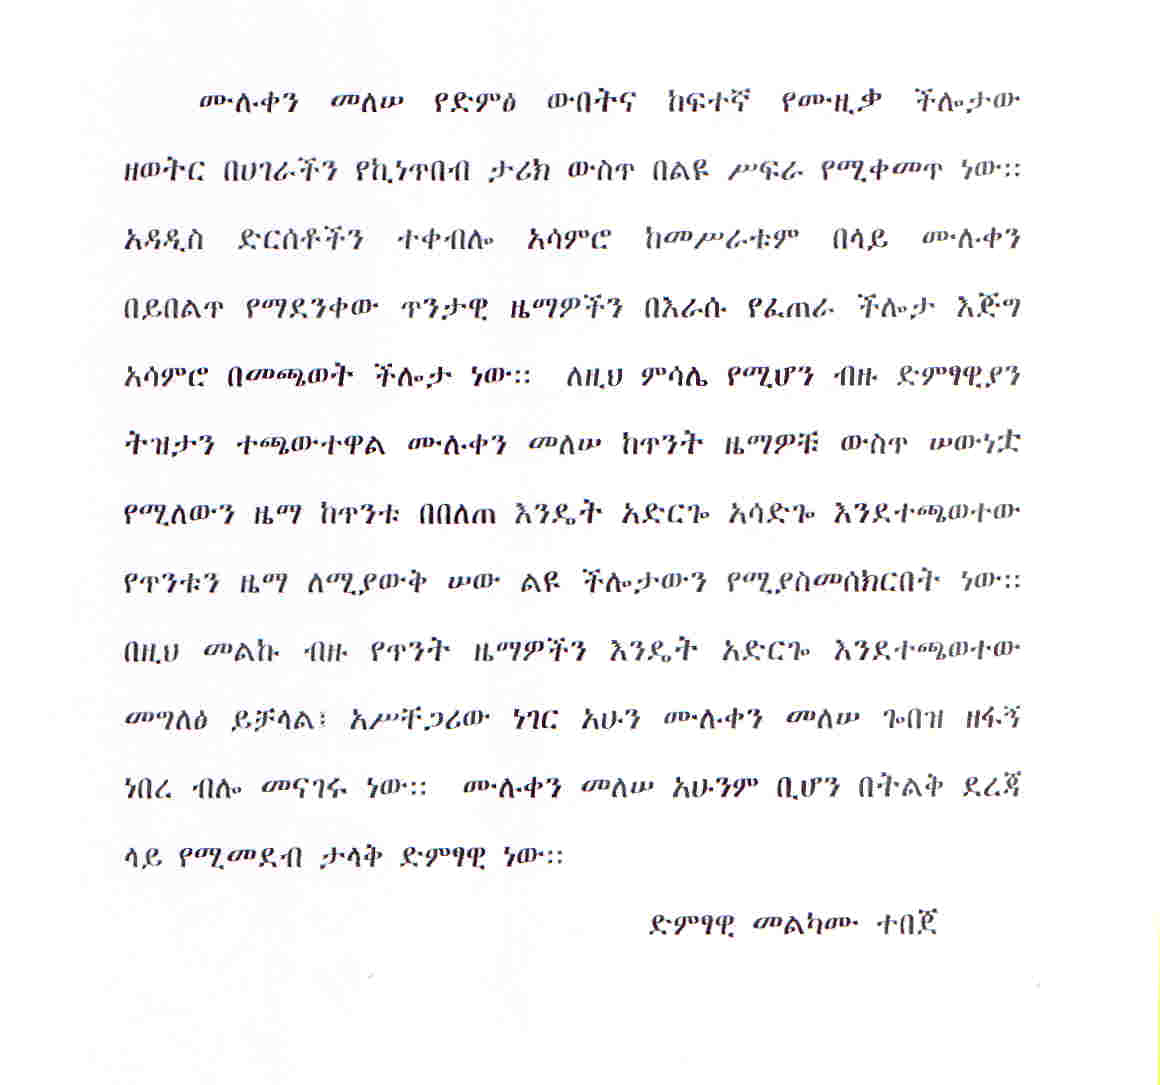 ሙሉቀን መለሠ የድምፅ ውበትና ከፍተኛ የሙዚቃ ችሎታው
ዘወትር በሀገራችን የኪነጥበብ ታሪክ ውስጥ በልዩ ሥፍራ የሚቀመጥ ነው።
አዳዲስ ድርሰቶችን ተቀብሎ አሳምሮ ከመሥራቱም በላይ ሙሉቀን
በይበልጥ የማደንቀው ጥንታዊ ዜማዎችን በእራሱ የፈጠራ ችሎታ እጅግ
አሳምሮ በመጫወት ችሎታ ነው። ለዚህ ምሳሌ የሚሆን ብዙ ድምፃዊያን
ትዝታን ተጫውተዋል ሙሉቀን መለሠ ከጥንት ዜማዎቹ ውስጥ ሠውነቷ
የሚለውን ዜማ ከጥንቱ በበለጠ እንዴት አድርጐ አሳድጐ እንደተጫወተው
የጥንቱን ዜማ ለሚያውቅ ሠው ልዩ ችሎታውን የሚያስመሰክርበት ነው።
በዚህ መልኩ ብዙ የጥንት ዜማዎችን እንዴት አድርጐ እንደተጫወተው
መግለፅ ይቻላል፤ አሥቸጋሪው ነገር አሁን ሙሉቀን መለሠ ጐበዝ ዘፋኝ
ነበረ ብሎ መናገሩ ነው። ሙሉቀን መለሠ አሁንም ቢሆን በትልቅ ደረጃ
ላይ የሚመደብ ታላቅ ድምፃዊ ነው።
ድምፃዊ መልካሙ ተበጀ